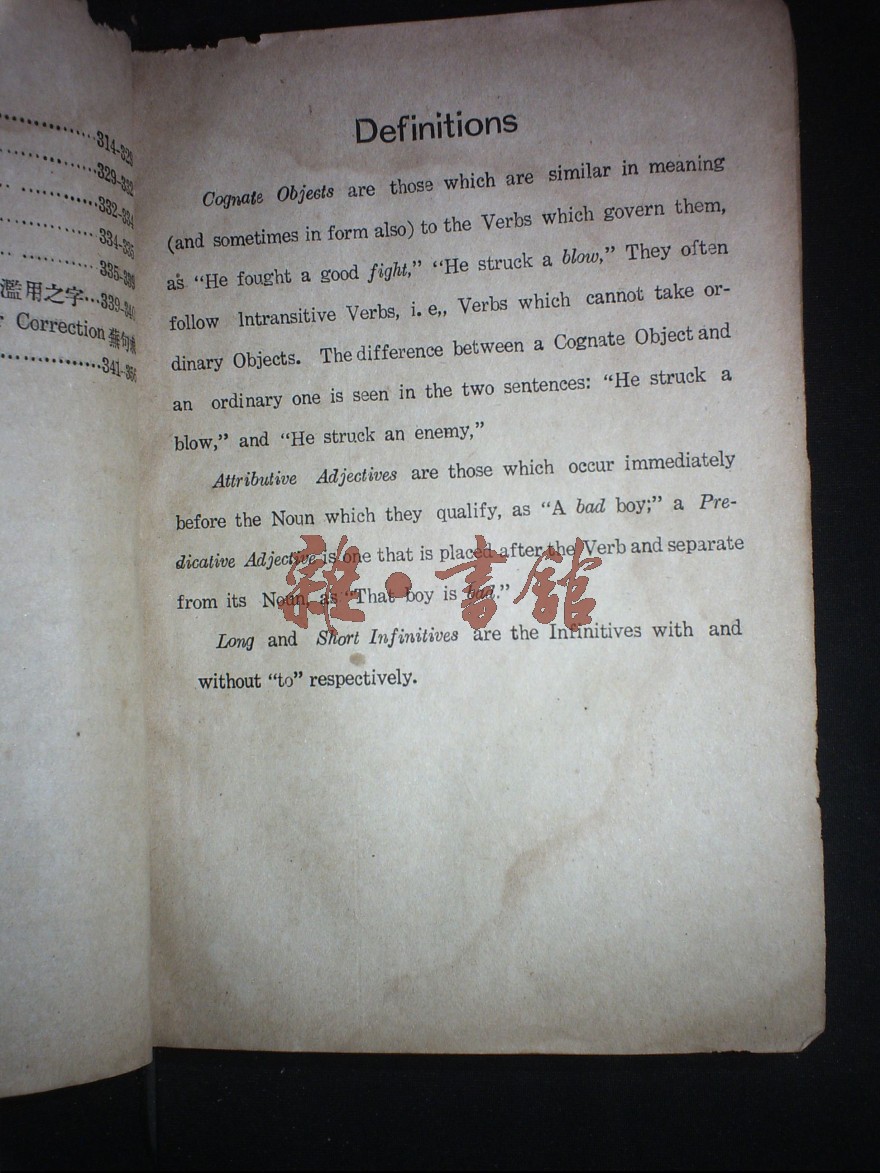 314-329
329-332
332-334
334-335
335-339
濫用之字…339-340
Correction
341-356
Definitions
Cognate Objects are those which are similar in meaning
(and sometimes in form also) to the Verbs which govern them,
as “He fought a good fight,” “He struck a blow,” They often
follow Intransitive Verbs, i. e,, Verbs which cannot take or-
dinary Objects. The difference between a Cognate Object and
an ordinary one is seen in the two sentences: “He struck a
blow,” and “He struck an enemy,”
Attributive Adjectives are those which occur immediately
before the Noun which they qualify, as “A bad boy;” a Pre-
dicative Adjective is one that is placed after the Verb and separate
from its Noun, as “That boy is bad.”
Long and Short Infinitives are the Infinitives with and
without “to” respectively.
雜·書館